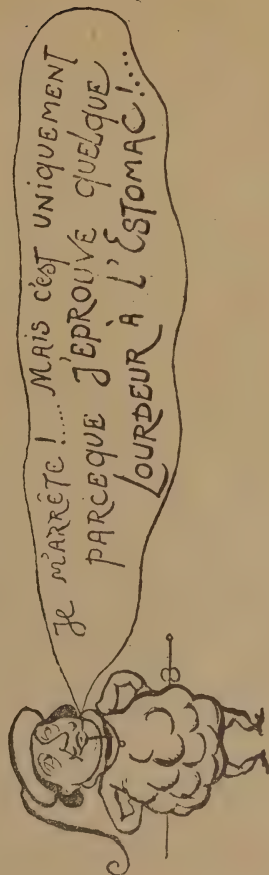 Je m'arrête !..... Mais c'est uniquement
parceque j'éprouve quelque
lourdeur à l'Estomac !....